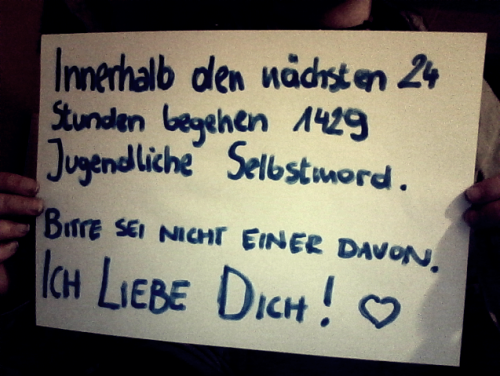 Innerhalb den nächsten 24
Stunden begehen 1429
Jugendliche Selbstmord.
BITTE SEI NICHT EINER DAVON.
ICH LIEBE DICH! ♡